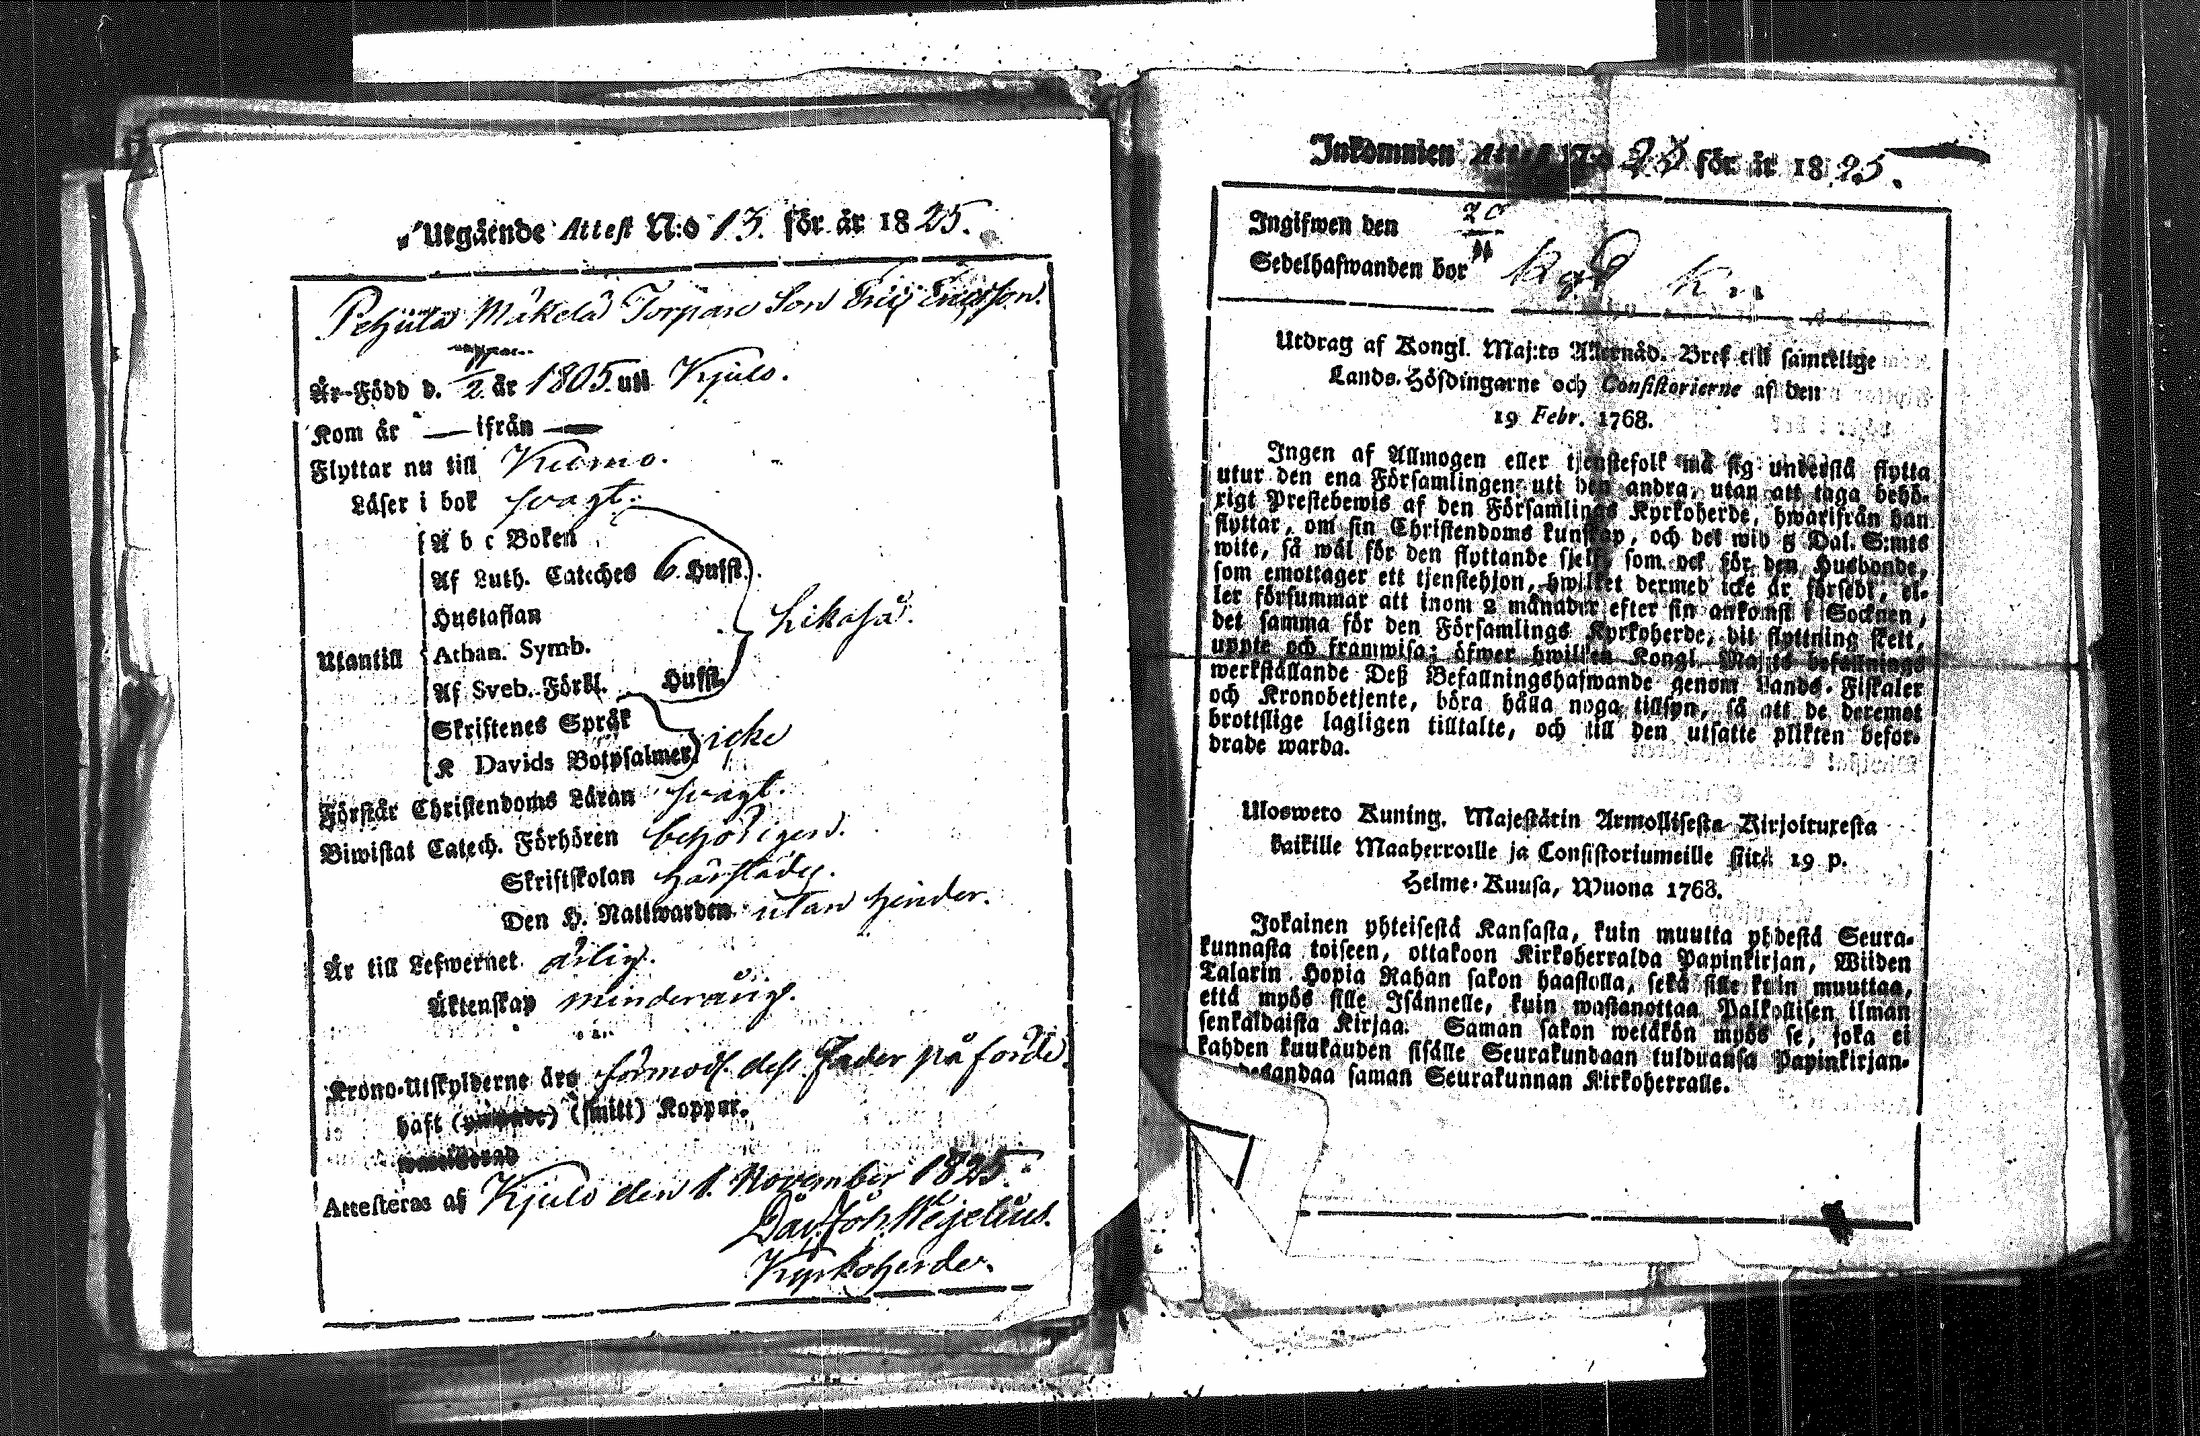 Utgående Attest N:o 13. för år 1825.
Pehula Mäkelä Torpare Son Eric Ericsson.
Är Född d. 11/2 år 1805. uti Kjulo.
Kom år — ifrån —
Flyttar nu till Kumo.
Läser i bok svagt.
A b c Boken
Af Luth. Cateches 6. Hufst.
Hustaflan
Likaså.
Utantill
Athan. Symb.
Af Sveb. Förkl. Hufst.
Skriftenes Språk
icke
K Davids Botpsalmer
Förstår Christendoms Läran svagt.
Biwistat Catech. Förhören behörigen.
Skriftskolan härstädes.
Den H. Nattwarden utan hinder.
Är till Lefwernet ärlig.
Äktenskap minderårig.
Krono-Utskylderne äro förmod. dess Fader påförde.
haft (smitt) Koppor.
Attesteras af Kjulo den 1. November 1825.
Dav. Joh. Wegelius.
Kyrkoherde.
Inkommen Attest N:o för år 1825.
Ingifwen den 20/11
Sedelhafwanden bor
Utdrag af Kongl. Maj:ts Allernåd. Bref till samtelige
Lands-Höfdingarne och Consistorierne af den
19 Febr. 1768.
Ingen af Allmogen eller tjenstefolk må sig understå flytta
utur den ena Församlingen uti den andra, utan att taga behö-
rigt Prestebewis af den Församlings Kyrkoherde, hwarifrån han
flyttar, om sin Christendoms kunskap, och det wid 5 Dal. S:mts
wite, så wäl för den flyttande sjelf, som ock för den Husbonde,
som emottager ett tjenstehjon, hwilket dermed icke är försedt, el-
ler försummar att inom 2 månader efter sin ankomst i Socknen,
det samma för den Församlings Kyrkoherde, dit flyttning skett,
uppte och framwisa; öfwer hwilken Kongl. Maj:ts befallnings
werkställande Deß Befallningshafwande genom Lands-Fiskaler
och Kronobetjente, böra hålla noga tillsyn, så att de deremot
brottslige lagligen tilltalte, och till den utsatte plikten befor-
drade warda.
Uloswero Kuning. Majestätin Armollisesta Kirjoituxesta
kaikille Maaherroille ja Consistoriumeille siitä 19 p.
Helme-Kuusa, Wuona 1768.
Jokainen yhteisestä Kansasta, kuin muutta yhdestä Seura-
kunnasta toiseen, ottakoon Kirkoherralda Papinkirjan, Wiiden
Talarin Hopia Rahan sakon haastolla, sekä sille kuin muuttaa,
että myös sille Isännelle, kuin wastanottaa Palkollisen ilman
senkaldaista Kirjaa. Saman sakon wetäkön myös se, joka ei
kahden kuukauden sisälle Seurakundaan tulduansa Papinkirjan-
saman Seurakunnan Kirkoherralle.